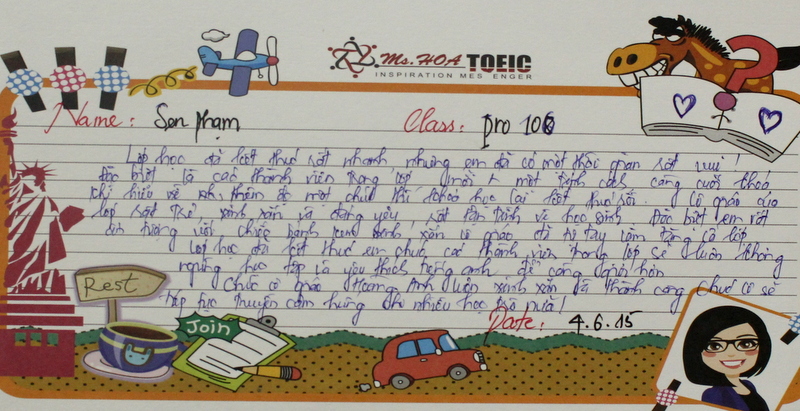 Ms. HOA TOEIC
INSPIRATION MESSENGER
Name: Sơn phạm
Class: pro 106
Lớp học đã kết thúc rất nhanh nhưng em đã có một thời gian rất vui!
Đặc biệt là các thành viên trong lớp mỗi 1 một tính cách càng cuối khoá
khi hiểu về nhau thêm được một chút thì khoá học lại kết thúc rồi. Cô giáo của
lớp rất trẻ xinh xắn và đáng yêu, rất tận tình về học sinh. Đặc biệt em rất
ấn tượng với chiếc bánh kem xinh xắn cô giáo đã tự tay làm tặng cả lớp
Lớp học đã kết thúc em chúc các thành viên trong lớp sẽ luôn không
ngừng học tập và yêu thích tiếng anh để càng giỏi hơn
Chúc cô giáo Hương Anh luôn xinh xắn và thành công chúc cô sẽ
tiếp tục truyền cảm hứng cho nhiều học trò nữa!
Rest
Join
Date: 4.6.15